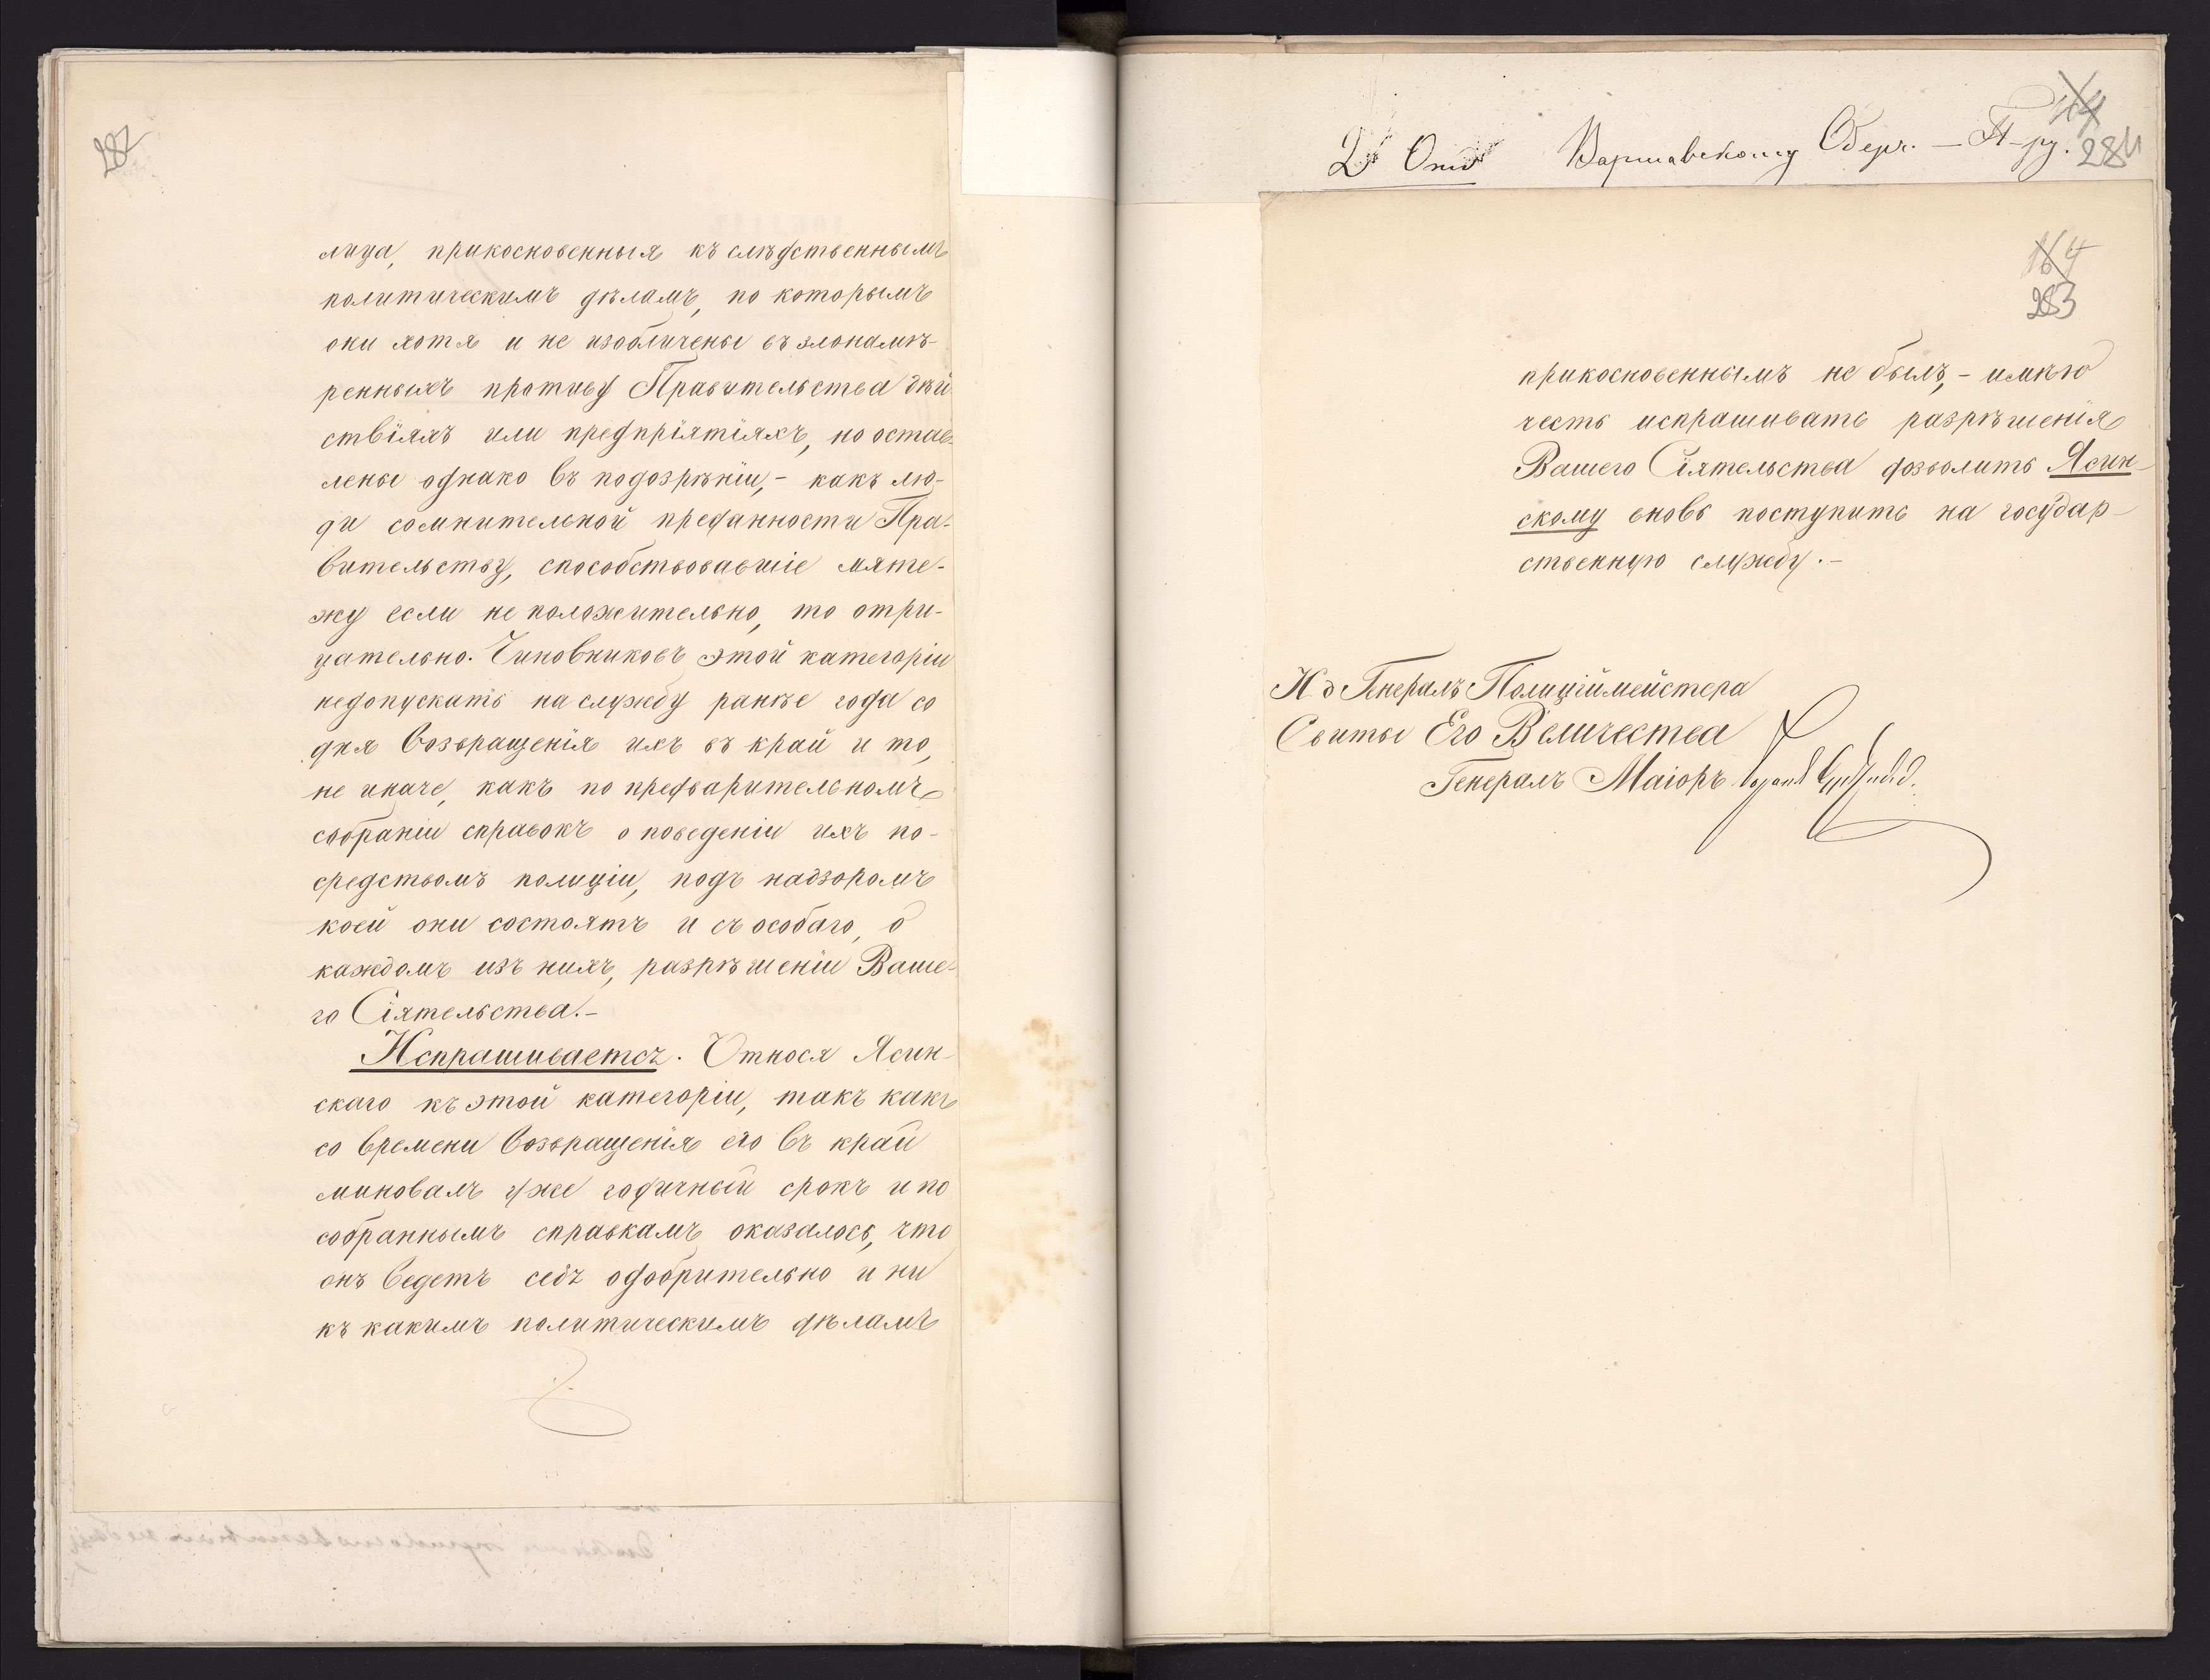 282
лица, прикосновенныя къ слѣдственнымъ
политическимъ дѣламъ, по которымъ
они хотя и не изобличены въ злонамѣ-
ренныхъ противу Правительства дѣй
ствіяхъ или предпріятіяхъ, но остав-
лены однако въ подозрѣніи, - какъ лю-
ди сомнительной преданности Пра-
вительству, способствовавшіе мяте-
жу если не положительно, то отри-
цательно. Чиновниковъ этой категоріи
недопускать на службу ранѣе года со
дня возвращенія ихъ въ край и то,
не иначе, какъ по предварительномъ
собраніи справокъ о поведеніи ихъ по-
средствомъ полиціи, подъ надзоромъ
коей они состоятъ и съ особаго, о
каждомъ изъ нихъ, разрѣшеніи Ваше-
го Сіятельства.-
Испрашивается. Относя Ясин-
скаго къ этой категоріи, такъ какъ
со времени возвращенія его въ край
миновалъ уже годичный срокъ и по
собраннымъ справкамъ оказалось, что
онъ ведетъ себя одобрительно и ни
къ какимъ политическимъ дѣламъ
2 Отд Варшавскому Оберъ. - П-ру.
284
164
283
прикосновеннымъ не былъ, - имѣю
честь испрашивать разрѣшенія
Вашего Сіятельства дозволить Ясин-
скому вновь поступить на государ-
ственную службу.-
И д Генералъ Полиціймейстера
Свиты Его Величества
Генералъ Маіоръ